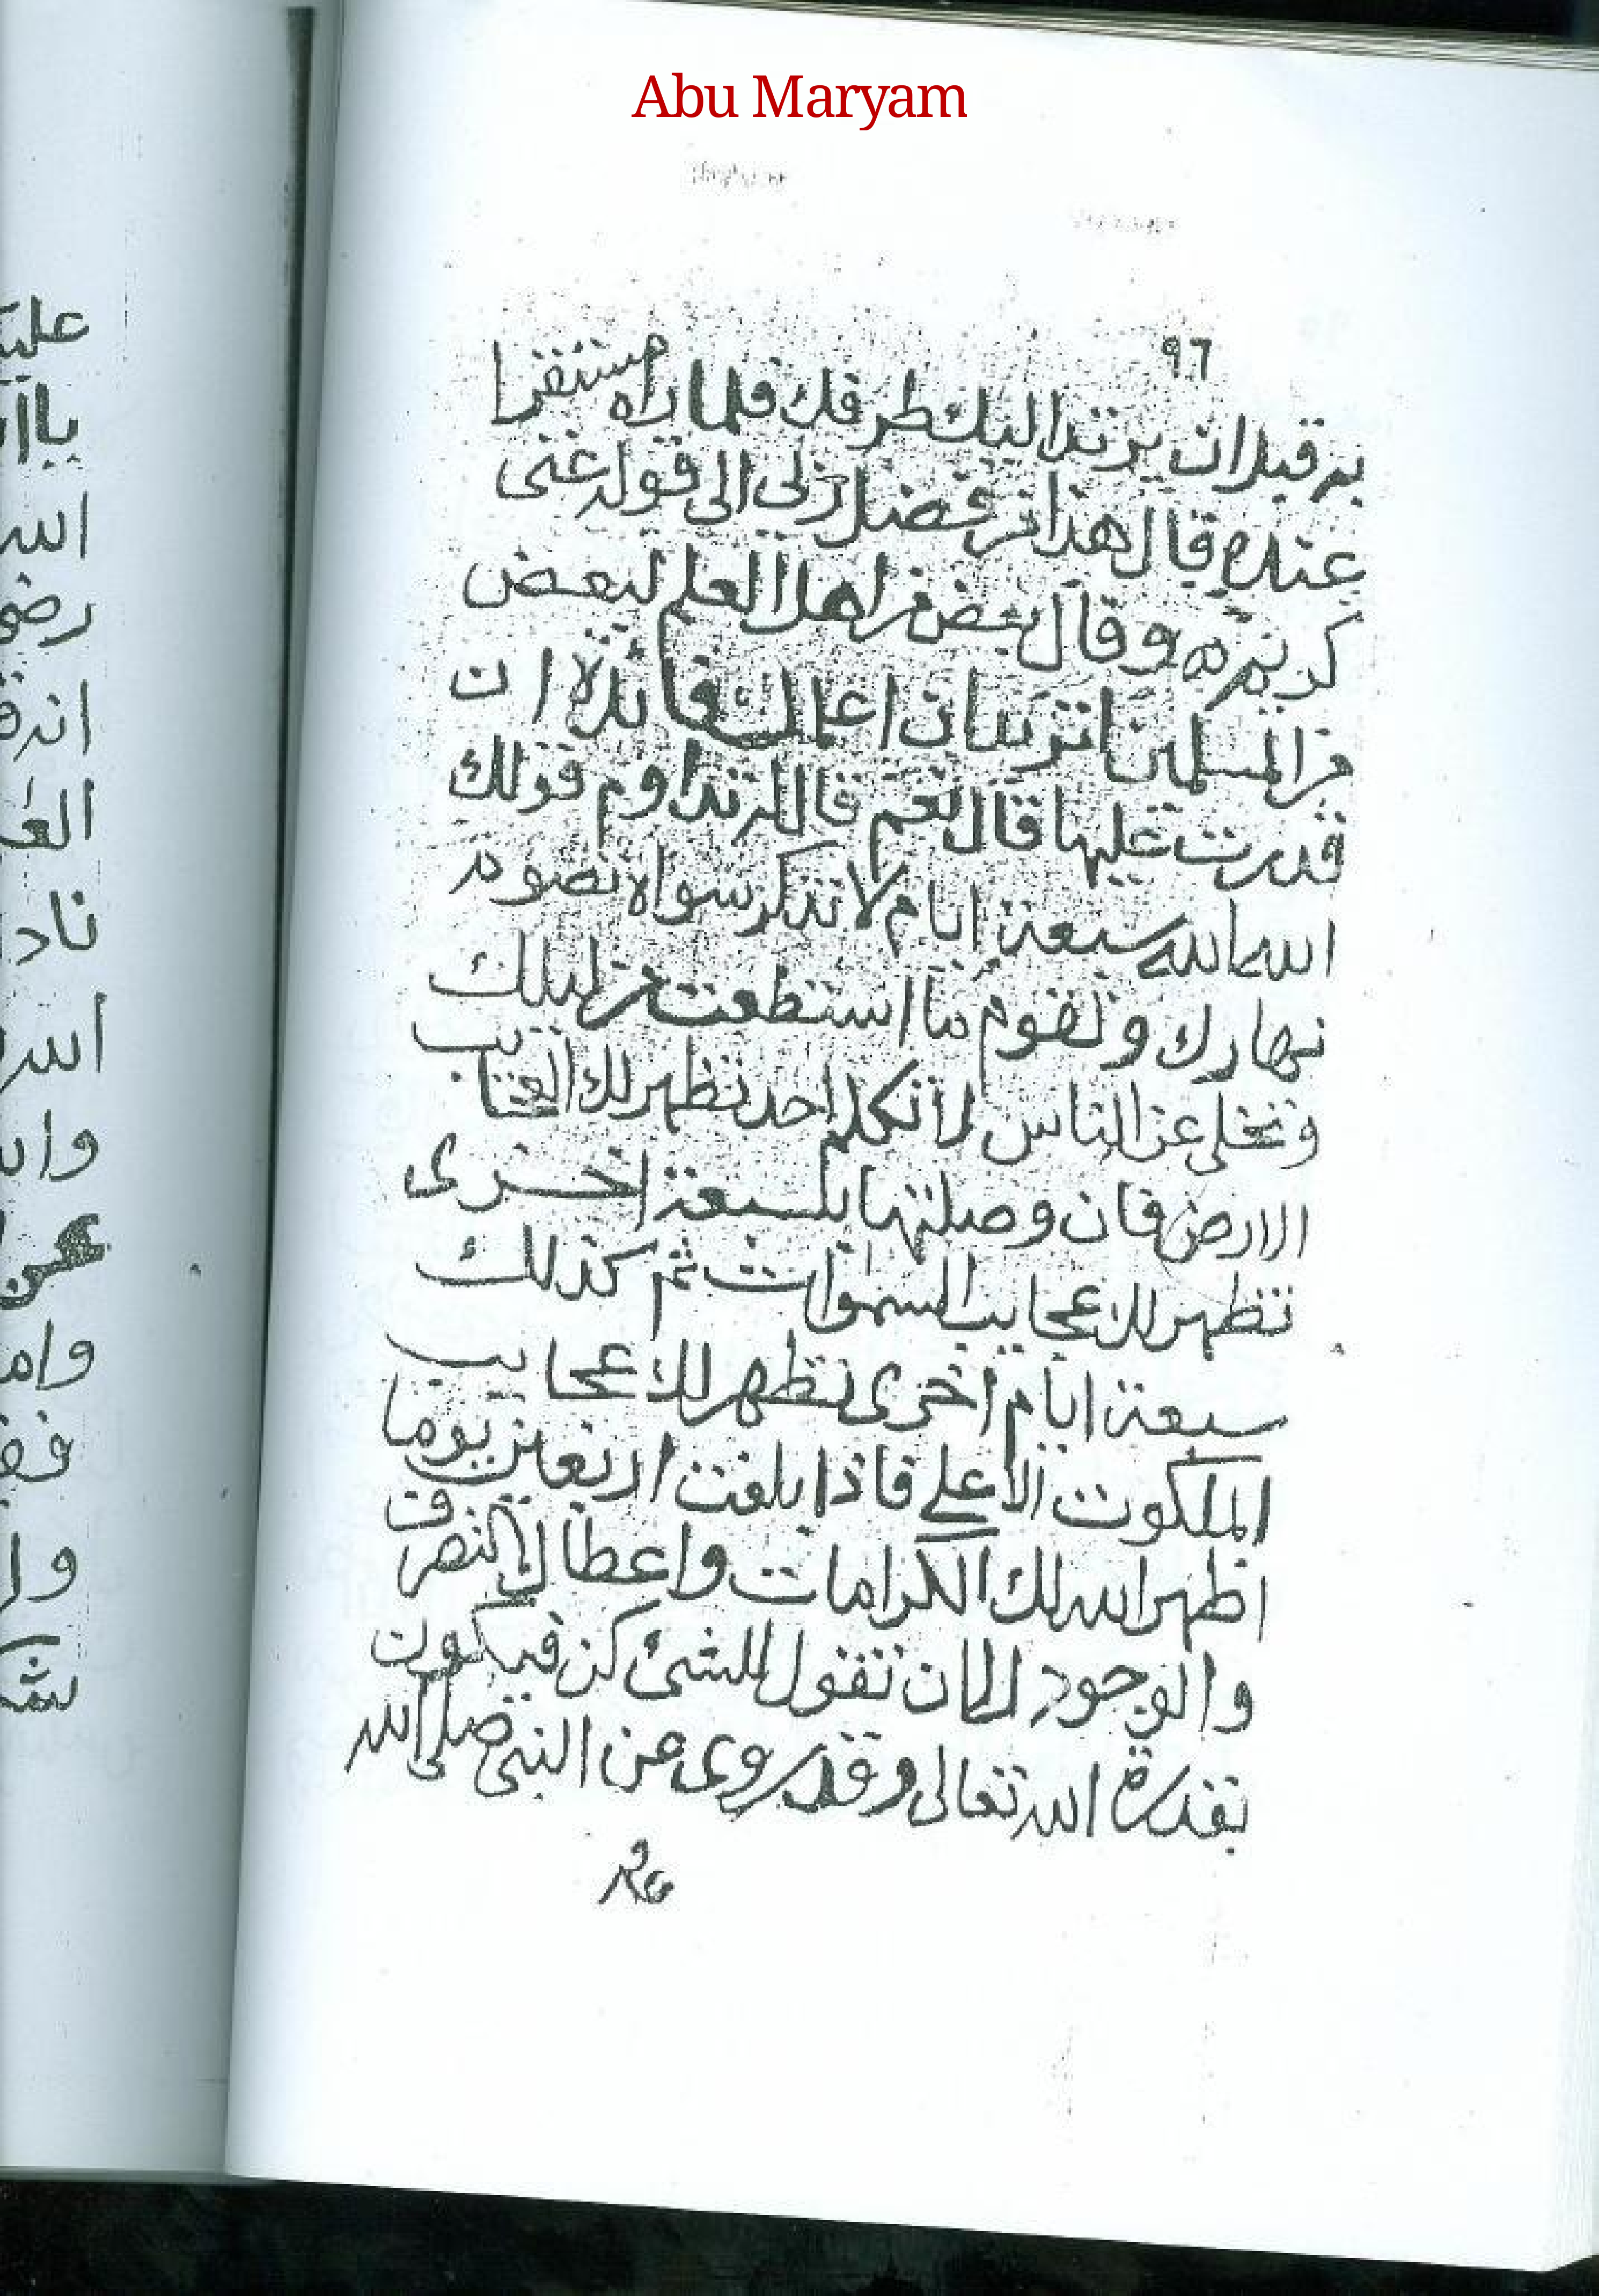 Abu Maryam
٩٦
به قبل ان يرتد اليك طرفك فلما راه مستقرا
عنده قال هذا من فضل ربي الى قوله غنى
كريم وقال بعض من اهل العلم لبعض
من المسلمين اتريد ان اعلمك فائدة ان
قدرت عليها قال نعم قال له تداوم قولك
الله الله سبعة ايام لا تذكر سواه تصوم
نهارك وتقوم ما استطعت من ليلك
وتخلى عن الناس لا تكلم احد تظهر لك العجايب
الارض فان وصلتها بسبعة اخرى
تظهر لك عجايب السموات ثم كذلك
سبعة ايام اخرى تظهر لك عجايب
الملكوت الاعلى فاذا بلغت اربعين يوما
اظهر الله لك الكرامات واعطاك التصرف
والوجود الى ان تقول للشئ كن فيكون
بقدرة الله تعالى وقد روى عن النبى صلى الله
عليه
باا
الله
رضى
انه
الع
ناد
الله
وا
عن
وام
فق
وا